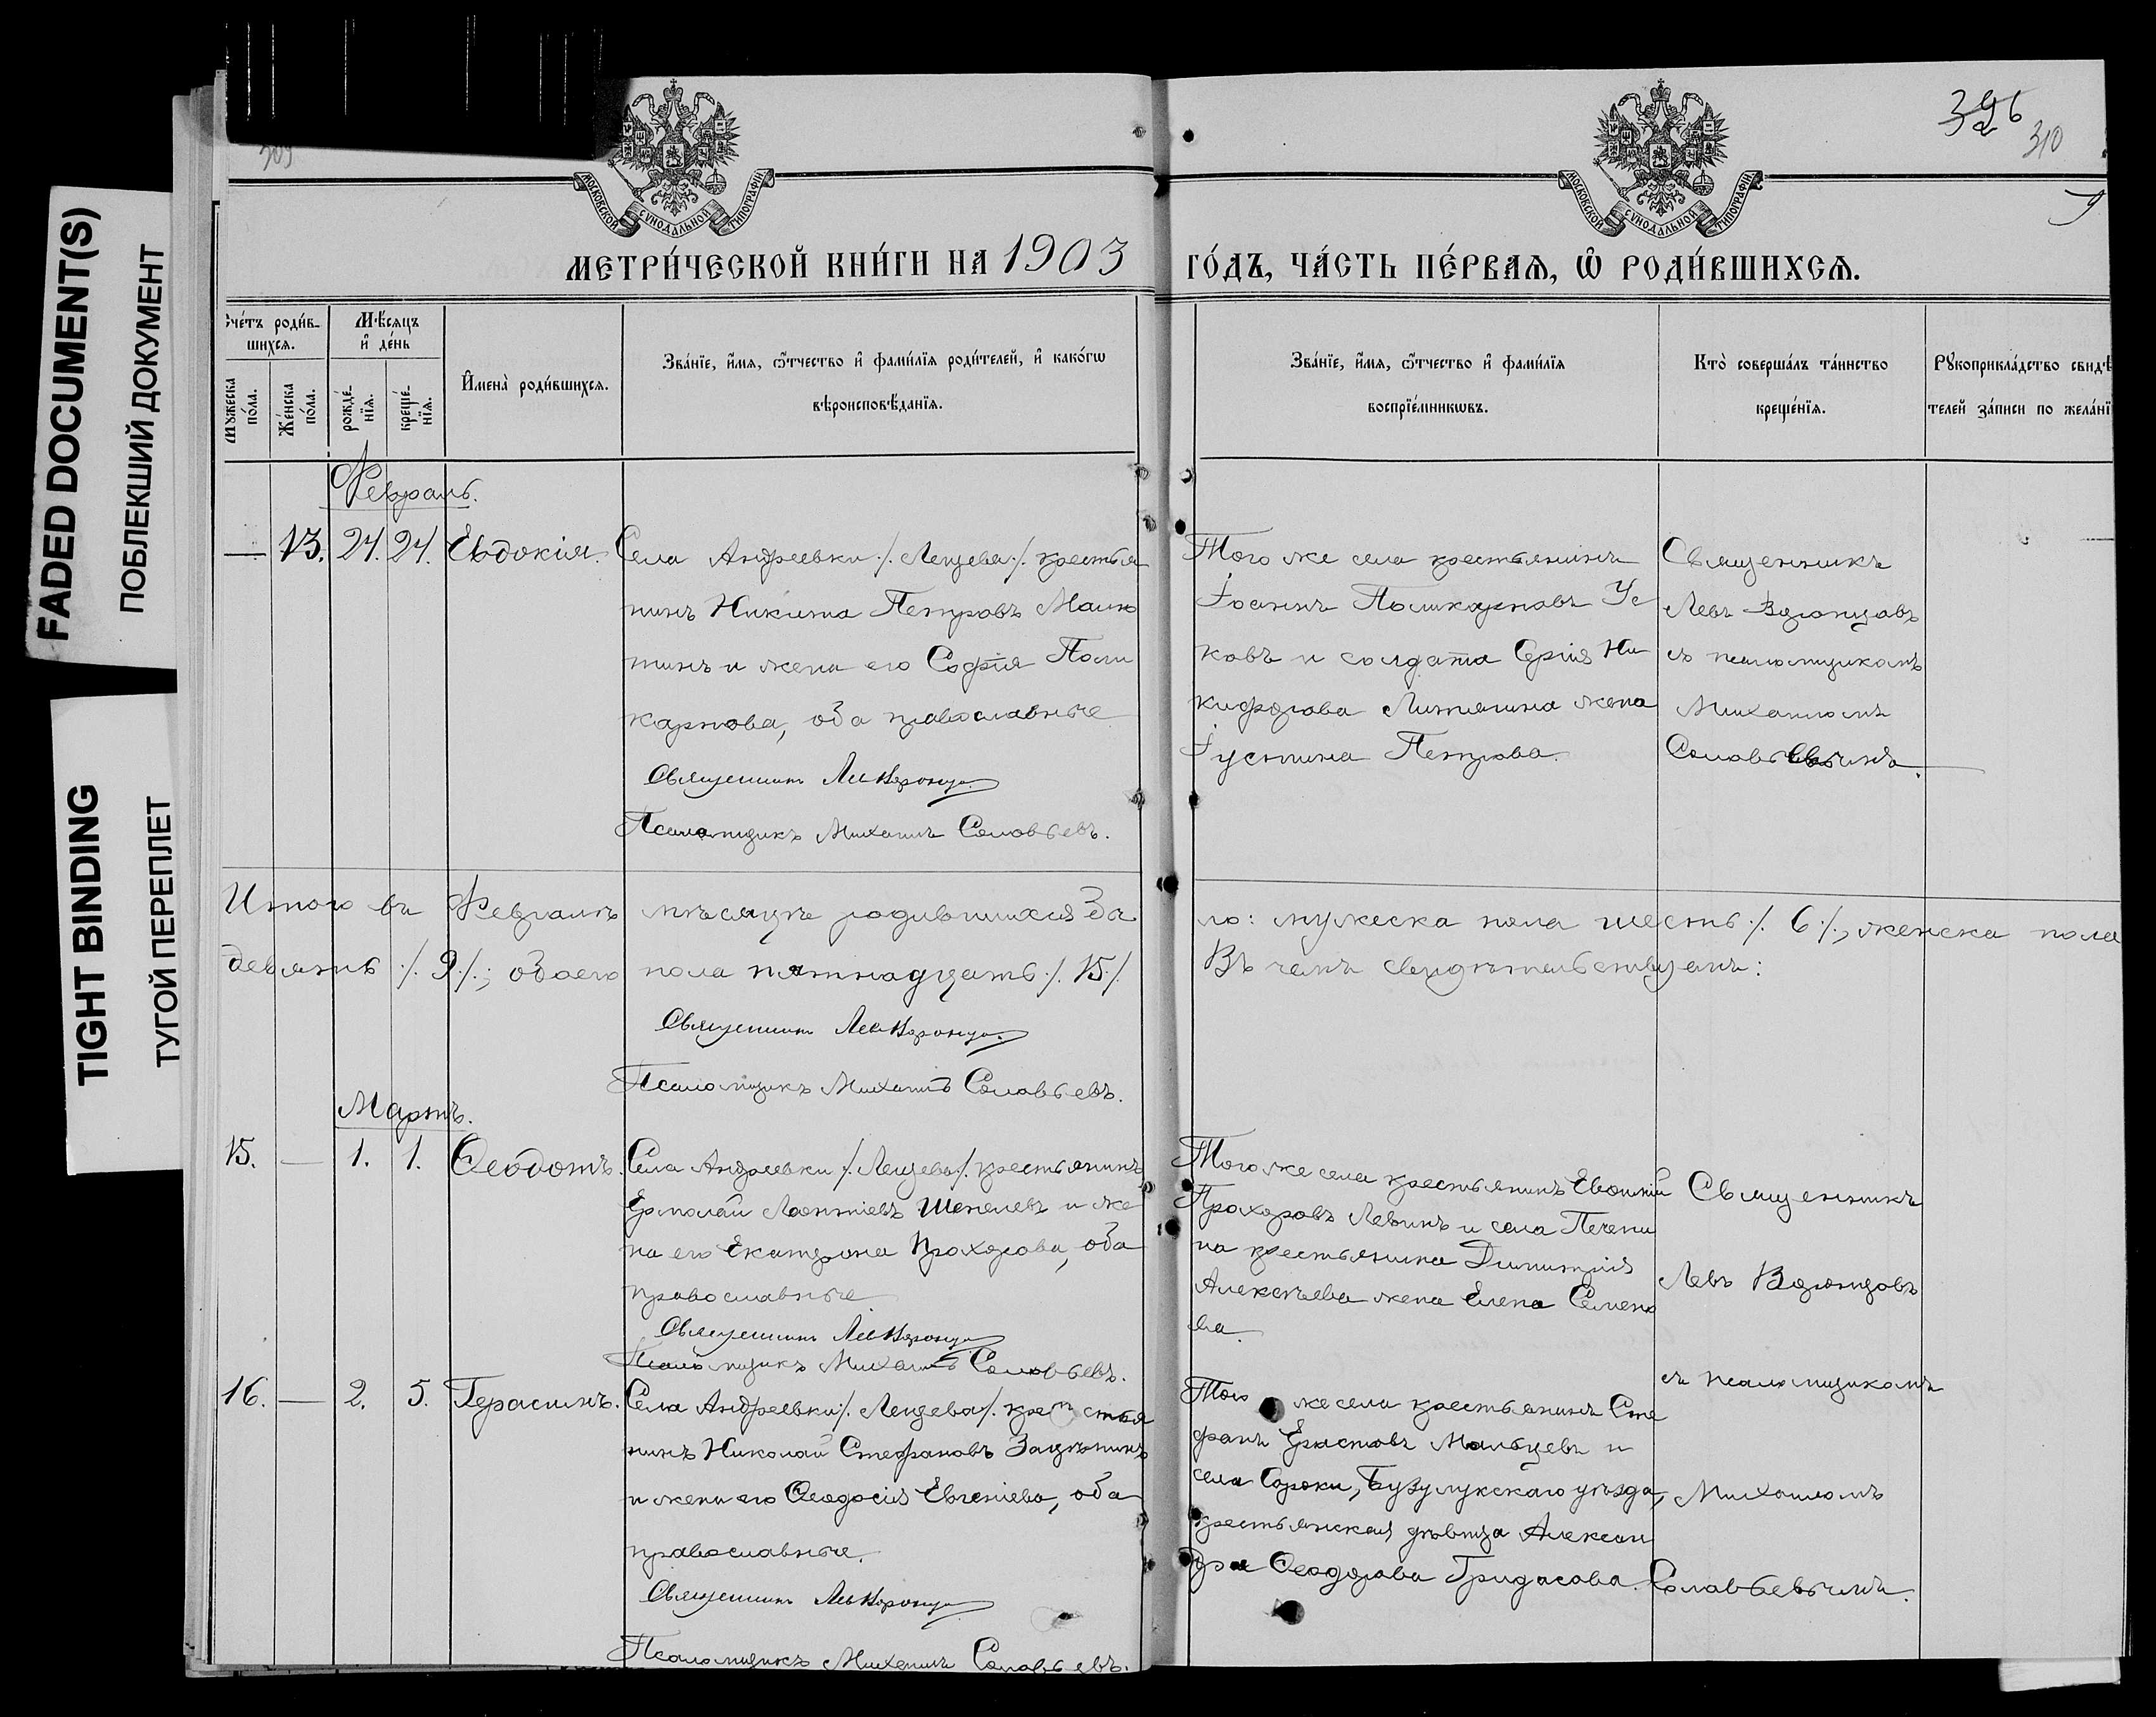 FADED DOCUMENT(S)
ПОБЛЕКШИЙ ДОКУМЕНТ
TIGHT BINDING
ТУГОЙ ПЕРЕПЛЕТ
309
326
310
9
МОСКОВСКОЙ СУНОДАЛЬНОЙ ТИПОГРАФІИ
МОСКОВСКОЙ СУНОДАЛЬНОЙ ТИПОГРАФІИ
МЕТРИ́ЧЕСКОЙ КНИ́ГИ НА 1903 ГО́ДЪ, ЧА́СТЬ ПЕ́РВАЯ, Ѿ РОДИ́ВШИХСѦ.
Сче́тъ роди́в-
шихся.
Мꙋжеска по́ла.
Же́нска по́ла.
Мѣ́сяцъ
и҆ де́нь
рожде́-
нїя.
креще́-
нїя.
И҆мена̀ роди́вшихся.
Зва́нїе, и҆́мя, ѻ҆́тчество и҆ фами́лїя роди́телей, и҆ како́гѡ
вѣроисповѣ́данїя.
Зва́нїе, и҆́мя, ѻ҆́тчество и҆ фами́лїя
воспрїе́мникѡвъ.
Кто̀ соверша́лъ та́инство
креще́нїя.
Рꙋкоприкла́дство свидѣ́
телей за́писи по жела́нї
Февраль.
— 13. 24. 24. Евдокія.
Села Андреевки /. Лещева ./. крестья
нинъ Никита Петровъ Малю
тинъ и жена его Софія Поли
карпова, оба православные
Священникъ Левъ Воронцо
Псаломщикъ Михаилъ Соловьевъ.
Того же села крестьянинъ
Іоаннъ Поликарповъ Ус
ковъ и солдата Сергія Ни
кифорова Литяшина жена
Іустина Петрова.
Священникъ
Левъ Воронцовъ
съ псаломщикомъ
Михаиломъ
Соловьевымъ.
Итого въ Февралѣ мѣсяцѣ родившихся бы ло: мужеска пола шесть /. 6 ./., женска пола
девять /. 9 /.; обоего пола пятнадцать /. 15 /. Въ чемъ свидѣтельствуемъ:
Священникъ Левъ Воронцо
Псаломщикъ Михаилъ Соловьевъ.
Мартъ.
15. — 1. 1. Ѳеодотъ.
Села Андреевки /. Лещева /. крестьянинъ
Ермолай Леонтіевъ Шепелевъ и же
на его Екатерина Прохорова, оба
православные
Священникъ Левъ Воронцо
Псаломщикъ Михаилъ Соловьевъ.
Того же села крестьянинъ Евѳимій
Прохоровъ Левинъ и села Печени
на крестьянина Димитрія
Алексѣева жена Елена Семено
ва.
Священникъ
Левъ Воронцовъ
16. — 2. 5. Герасимъ.
Села Андреевки /. Лещева /. крестья
нинъ Николай Стефановъ Зацѣпинъ
и жена его Ѳеодосія Евгеніева, оба
православные.
Священникъ Левъ Воронцо
Псаломщикъ Михаилъ Соловьевъ.
Того же села крестьянинъ Сте
фанъ Ерастовъ Мальцевъ и
села Сороки, Бузулукскаго уѣзда,
крестьянская дѣвица Алексан
дра Ѳеодорова Гридасова.
съ псаломщикомъ
Михаиломъ
Соловьевымъ.